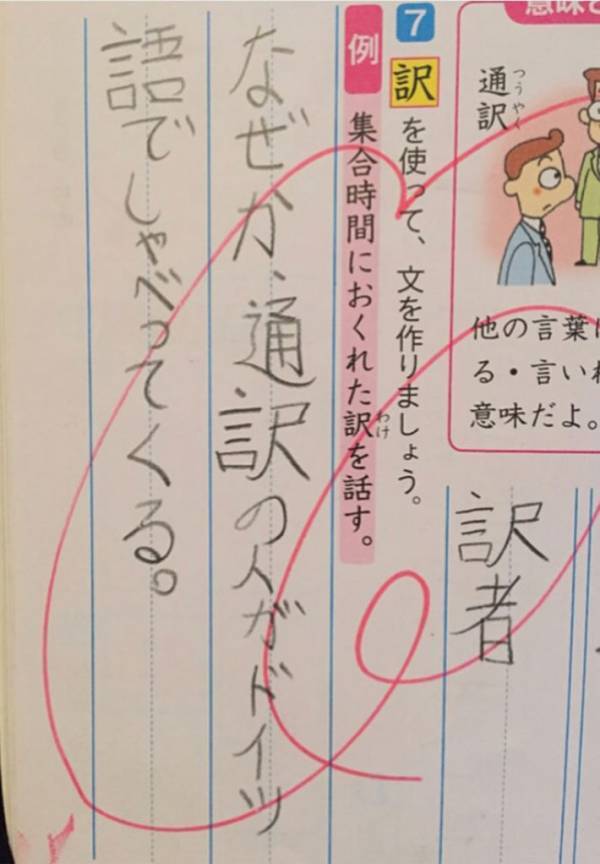 意味と
通訳
つうやく
他の言葉に
る・言いか
意味だよ。
訳者
7 訳を使って、文を作りましょう。
例 集合時間におくれた訳を話す。
わけ
なぜか、通訳の人がドイツ
語でしゃべってくる。